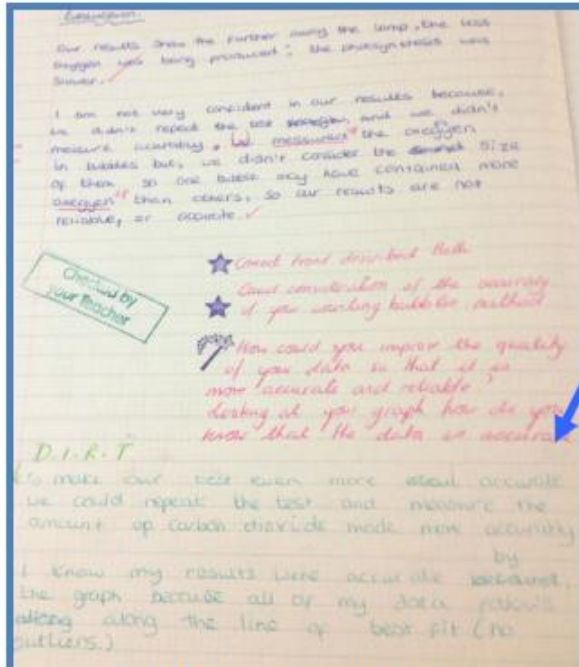 Evaluation.
Our results show the further away the lamp, the less
oxygen was being produced; the photosynthesis was
slower.
I am not very confident in our results because,
we didn't repeat the test and we didn't
measure accurately. We measured the oxegyen
in bubbles but, we didn't consider the size
of them so one bubble may have contained more
oxegyen than others, so our results are not
reliable, or accurate.
Checked by
your Teacher
Correct trend described Beth
Good consideration of the accuracy
of you counting bubbles method
How could you improve the quality
of your data so that it is
more accurate and reliable?
Looking at your graph how do you
know that the data is accurate
D.I.R.T
To make our test even more accurate
we could repeat the test and measure the
amount of carbon dioxide made more accurately
by
I know my results were accurate
the graph because all of my data follows
along the line of best fit (no
outliers.)